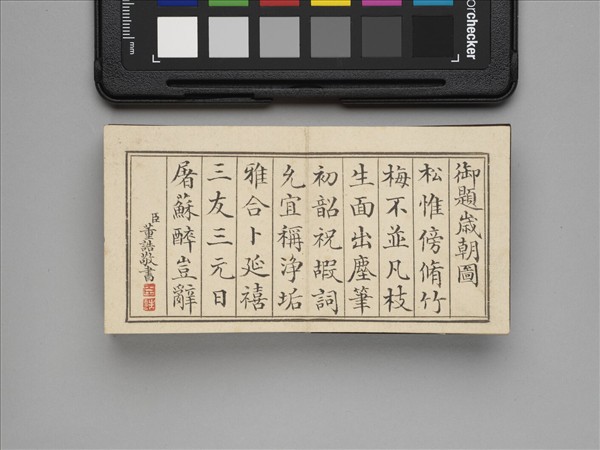 mm
colorchecker
御題歲朝圖
松惟傍脩竹
梅不並凡枝
生面出塵筆
初韶祝嘏詞
允宜稱淨垢
雅合卜延禧
三友三元日
屠蘇醉豈辭
臣董誥敬書